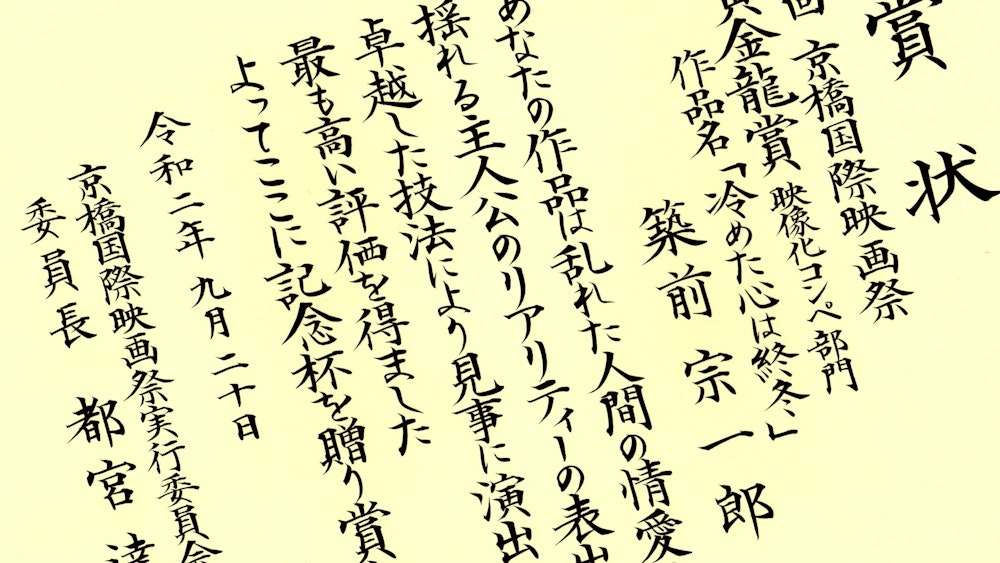 賞状
回 京橋国際映画祭
黄金龍賞 映像化コンペ部門
作品名「冷めた心は終冬、」
築前宗一郎
あなたの作品は乱れた人間の情愛
揺れる主人公のリアリティーの表出
卓越した技法により見事に演出
最も高い評価を得ました
よってここに記念杯を贈り賞
令和二年九月二十日
京橋国際映画祭実行委員会
委員長 都宮